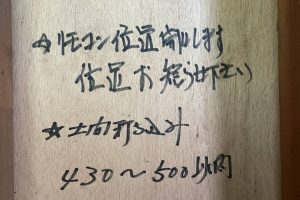 ☆リモコン位置出します
位置お知らせ下さい
☆土間打込み
430〜500以内